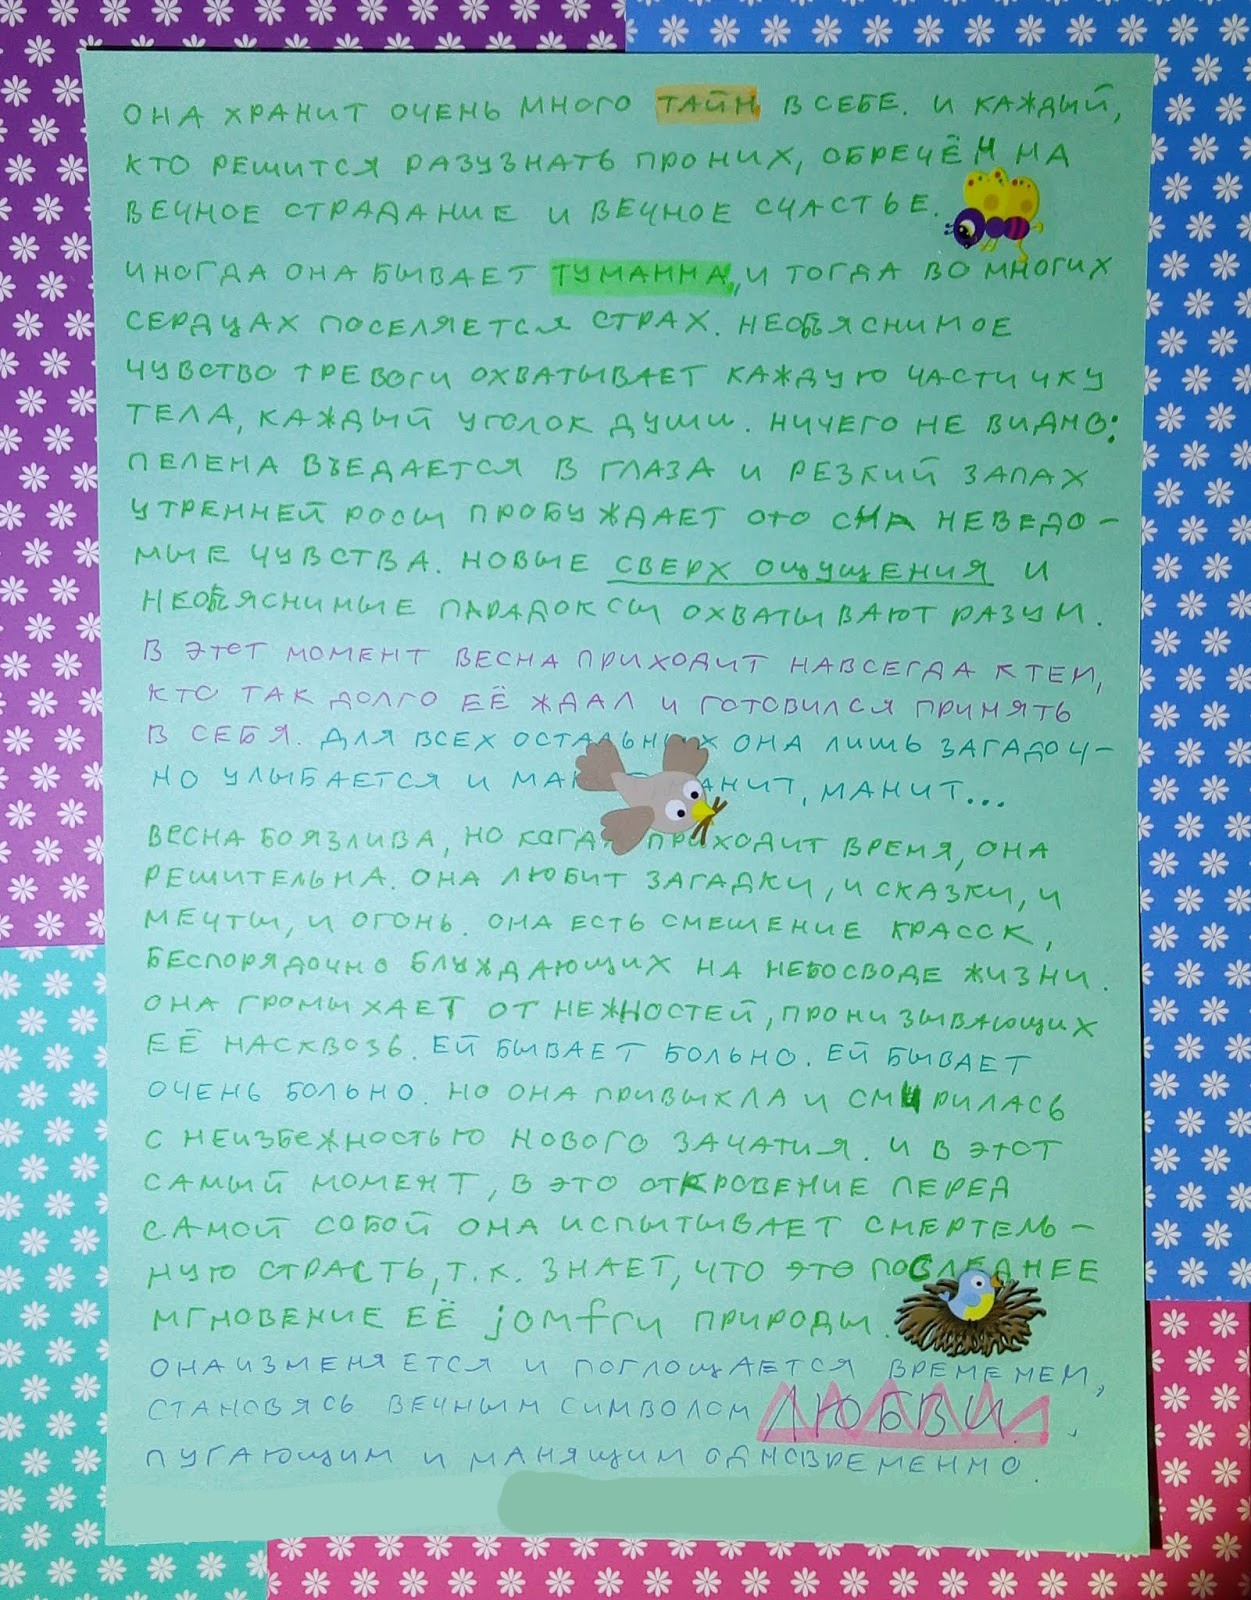 ОНА ХРАНИТ ОЧЕНЬ МНОГО ТАЙН В СЕБЕ. И КАЖДЫЙ,
КТО РЕШИТСЯ РАЗУЗНАТЬ ПРО НИХ, ОБРЕЧЁН НА
ВЕЧНОЕ СТРАДАНИЕ И ВЕЧНОЕ СЧАСТЬЕ.
ИНОГДА ОНА БЫВАЕТ ТУМАННА, И ТОГДА ВО МНОГИХ
СЕРДЦАХ ПОСЕЛЯЕТСЯ СТРАХ. НЕОБЪЯСНИМОЕ
ЧУВСТВО ТРЕВОГИ ОХВАТЫВАЕТ КАЖДУЮ ЧАСТИЧКУ
ТЕЛА, КАЖДЫЙ УГОЛОК ДУШИ. НИЧЕГО НЕ ВИДНО:
ПЕЛЕНА ВЪЕДАЕТСЯ В ГЛАЗА И РЕЗКИЙ ЗАПАХ
УТРЕННЕЙ РОСЫ ПРОБУЖДАЕТ ОТО СНА НЕВЕДО-
МЫЕ ЧУВСТВА. НОВЫЕ СВЕРХ ОЩУЩЕНИЯ И
НЕОБЪЯСНИМЫЕ ПАРАДОКСЫ ОХВАТЫВАЮТ РАЗУМ.
В ЭТОТ МОМЕНТ ВЕСНА ПРИХОДИТ НАВСЕГДА К ТЕМ,
КТО ТАК ДОЛГО ЕЁ ЖДАЛ И ГОТОВИЛСЯ ПРИНЯТЬ
В СЕБЯ. ДЛЯ ВСЕХ ОСТАЛЬНЫХ ОНА ЛИШЬ ЗАГАДОЧ-
НО УЛЫБАЕТСЯ И МАНИТ, МАНИТ...
ВЕСНА БОЯЗЛИВА, НО КОГДА ПРИХОДИТ ВРЕМЯ, ОНА
РЕШИТЕЛЬНА. ОНА ЛЮБИТ ЗАГАДКИ, И СКАЗКИ, И
МЕЧТЫ, И ОГОНЬ. ОНА ЕСТЬ СМЕШЕНИЕ КРАСОК,
БЕСПОРЯДОЧНО БЛУЖДАЮЩИХ НА НЕБОСВОДЕ ЖИЗНИ.
ОНА ГРОМЫХАЕТ ОТ НЕЖНОСТЕЙ, ПРОНИЗЫВАЮЩИХ
ЕЁ НАСКВОЗЬ. ЕЙ БЫВАЕТ БОЛЬНО. ЕЙ БЫВАЕТ
ОЧЕНЬ БОЛЬНО. НО ОНА ПРИВЫКЛА И СМИРИЛАСЬ
С НЕИЗБЕЖНОСТЬЮ НОВОГО ЗАЧАТИЯ. И В ЭТОТ
САМЫЙ МОМЕНТ, В ЭТО ОТКРОВЕНИЕ ПЕРЕД
САМОЙ СОБОЙ ОНА ИСПЫТЫВАЕТ СМЕРТЕЛЬ-
НУЮ СТРАСТЬ, Т.К. ЗНАЕТ, ЧТО ЭТО ПОСЛЕДНЕЕ
МГНОВЕНИЕ ЕЁ jomfru ПРИРОДЫ.
ОНА ИЗМЕНЯЕТСЯ И ПОГЛОЩАЕТСЯ ВРЕМЕНЕМ,
СТАНОВЯСЬ ВЕЧНЫМ СИМВОЛОМ ЛЮБВИ,
ПУГАЮЩИМ И МАНЯЩИМ ОДНОВРЕМЕННО.